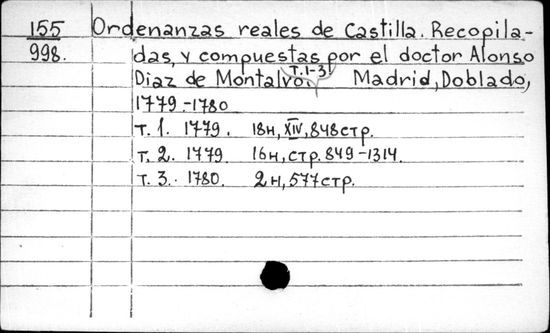 155 Ordenanzas reales de Castilla. Recopila-
998. das, y compuestas por el doctor Alonso
Diaz de Montalvo. т.1-3 Madrid, Doblado,
1779-1780
т. 1. 1779. 18н, XIV, 848 стр.
т. 2. 1779. 16н, стр. 849-1314.
т. 3. 1780. 2н, 577 стр.